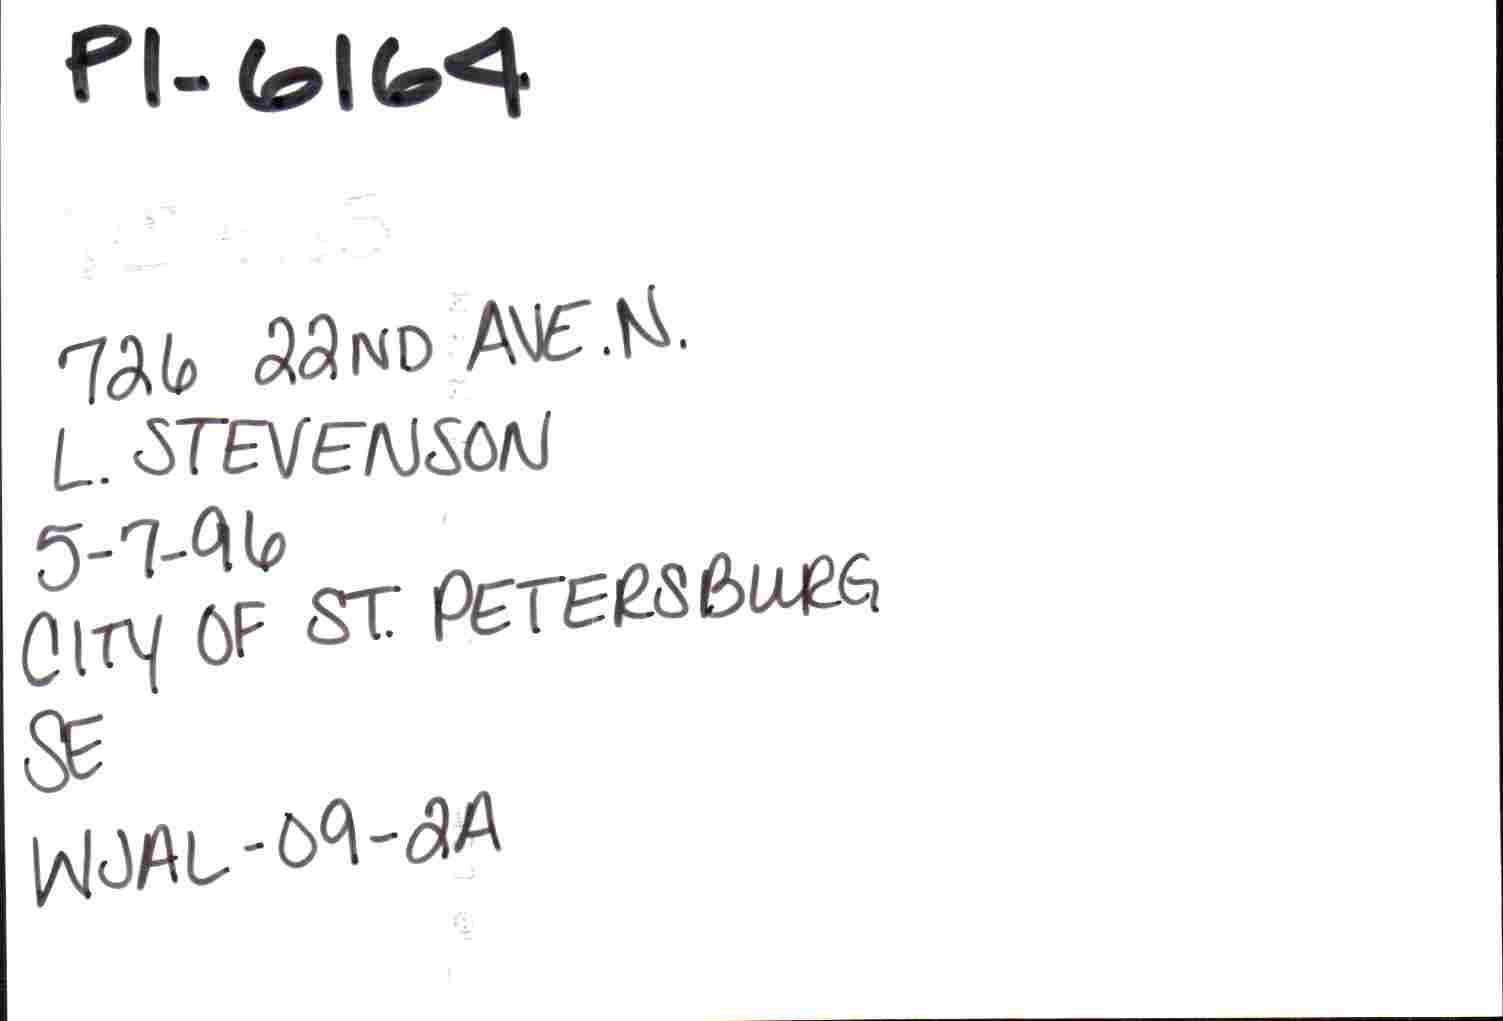 PI-6164
726 22ND AVE.N.
L. STEVENSON
5-7-96
CITY OF ST. PETERSBURG
SE
WJAL-09-2A